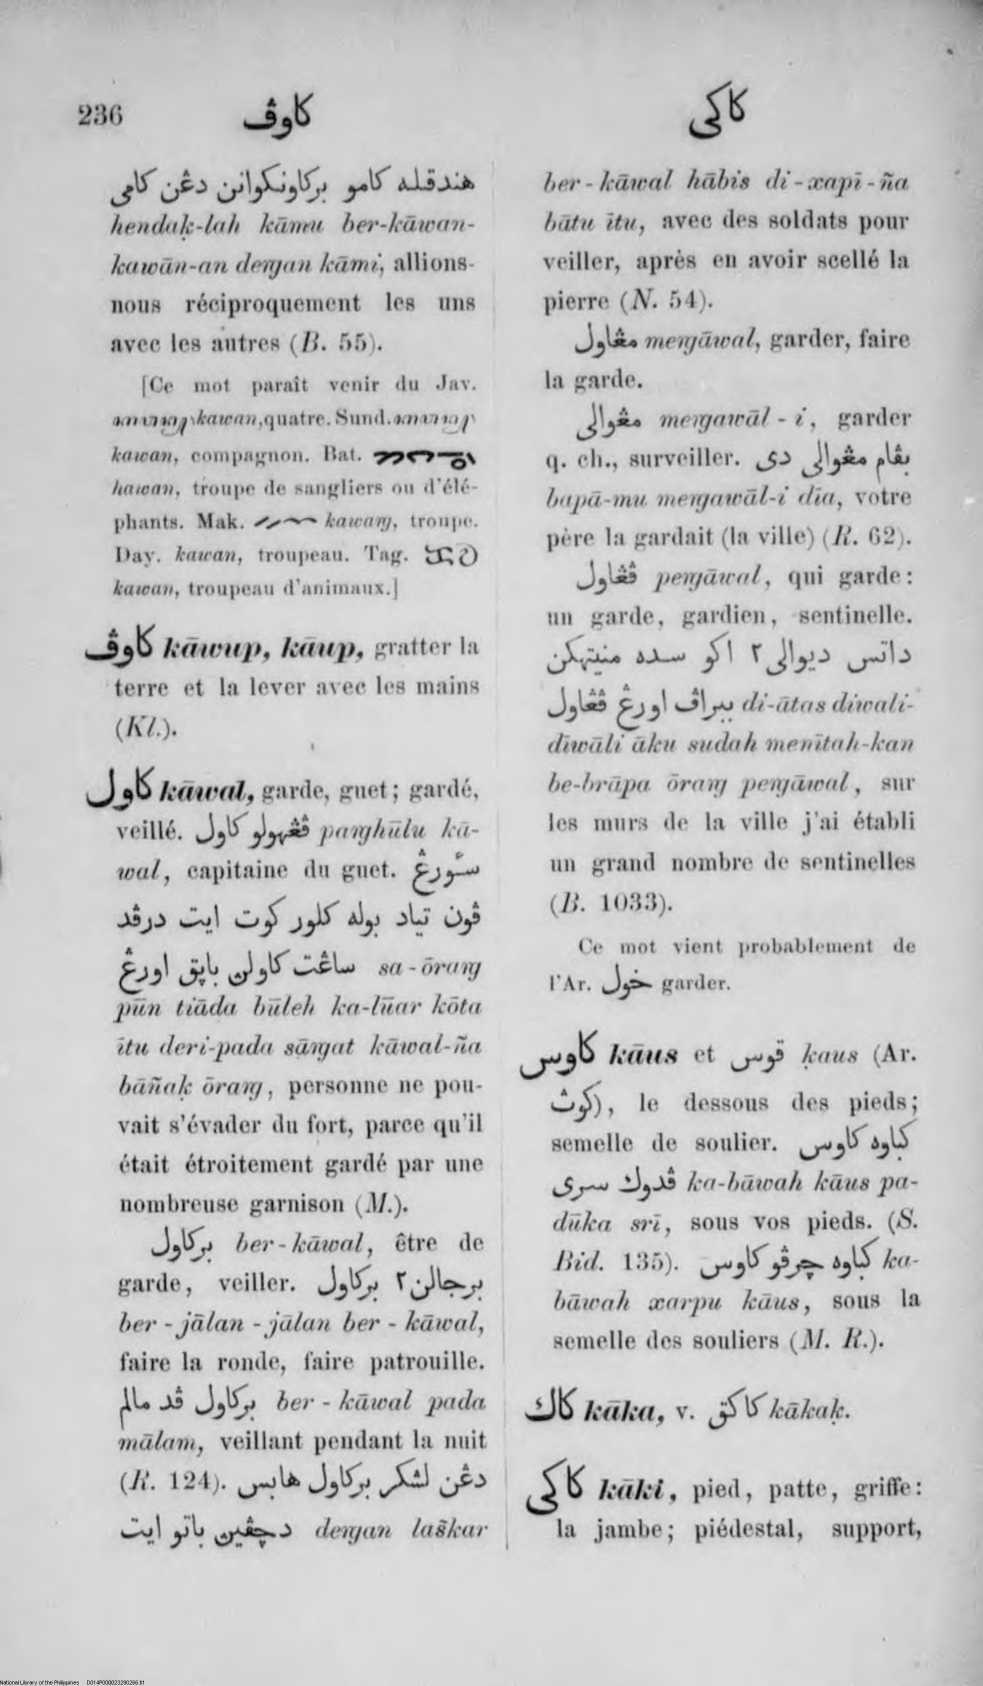 236
كاوڤ
كاكي
هندقله كامو بركاونكوانن دڠن كامي
hendaḳ-lah kāmu ber-kāwan-
kawān-an deṅgan kāmi, allions-
nous réciproquement les uns
avec les autres (B. 55).
[Ce mot paraît venir du Jav.
kawan, quatre. Sund.
kawan, compagnon. Bat.
hawan, troupe de sangliers ou d'élé-
phants. Mak. kawaṅg, troupe.
Day. kawan, troupeau. Tag.
kawan, troupeau d'animaux.]
كاوڤ kāwup, kāup, gratter la
terre et la lever avec les mains
(Kl.).
كاول kāwal, garde, guet; gardé,
veillé. ڤڠهولو كاول paṅghūlu kā-
wal, capitaine du guet. سئورڠ
ڤون تياد بوله كلور كوت ايت درڤد
ساڠت كاولن باڽق اورڠ sa-ōraṅg
pūn tiāda būleh ka-lūar kōta
ītu deri-pada sāṅgat kāwal-ña
bāñaḳ ōraṅg, personne ne pou-
vait s'évader du fort, parce qu'il
était étroitement gardé par une
nombreuse garnison (M.).
بركاول ber-kāwal, être de
garde, veiller. برجالن٢ بركاول
ber-jālan-jālan ber-kāwal,
faire la ronde, faire patrouille.
بركاول ڤد مالم ber-kāwal pada
mālam, veillant pendant la nuit
(R. 124). دڠن لشكر بركاول هابس
دچڤين باتو ايت deṅgan laškar
ber-kāwal hābis di-xapī-ña
bātu ītu, avec des soldats pour
veiller, après en avoir scellé la
pierre (N. 54).
مڠاول meṅgāwal, garder, faire
la garde.
مڠوالي meṅgawāl-i, garder
q. ch., surveiller. بڤام مڠوالي دى
bapā-mu meṅgawāl-i dīa, votre
père la gardait (la ville) (R. 62).
ڤڠاول peṅgāwal, qui garde:
un garde, gardien, sentinelle.
داتس ديوالي٢ اكو سده منيتهكن
ببراڤ اورڠ ڤڠاول di-ātas diwali-
dīwāli āku sudah menītah-kan
be-brāpa ōraṅg peṅgāwal, sur
les murs de la ville j'ai établi
un grand nombre de sentinelles
(B. 1033).
Ce mot vient probablement de
l'Ar. خول garder.
كاوس kāus et قوس ḳaus (Ar.
كوث), le dessous des pieds;
semelle de soulier. كباوه كاوس
ڤدوك سرى ka-bāwah kāus pa-
dūka srī, sous vos pieds. (S.
Bid. 135). كباوه چرڤو كاوس ka-
bāwah xarpu kāus, sous la
semelle des souliers (M. R.).
كاك kāka, v. كاكق kākaḳ.
كاكي kāki, pied, patte, griffe:
la jambe; piédestal, support,
National Library of the Philippines